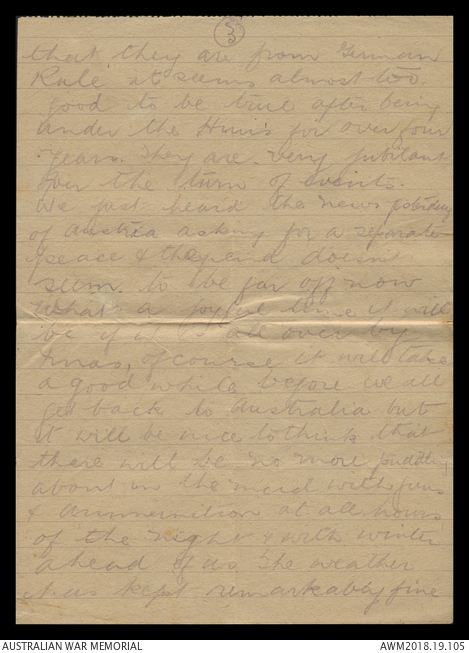 3
that they are from German
Rule, it seems almost too
good to be true after being
under the Hun's for over four
years. They are very jubilant
over the turn of events.
We just heard the news yesterday
of Austria asking for a separate
peace & the end doesnt
seem to be far off now
What a joyful time it will
be if it is all over by
Xmas, of course it will take
a good while before we all
get back to Australia but
it will be nice to think that
there will be no more puddling
about in the mud with guns
& ammunition at all hours
of the night & with winter
ahead of us. The weather
has kept remarkably fine
AUSTRALIAN WAR MEMORIAL
AWM2018.19.105